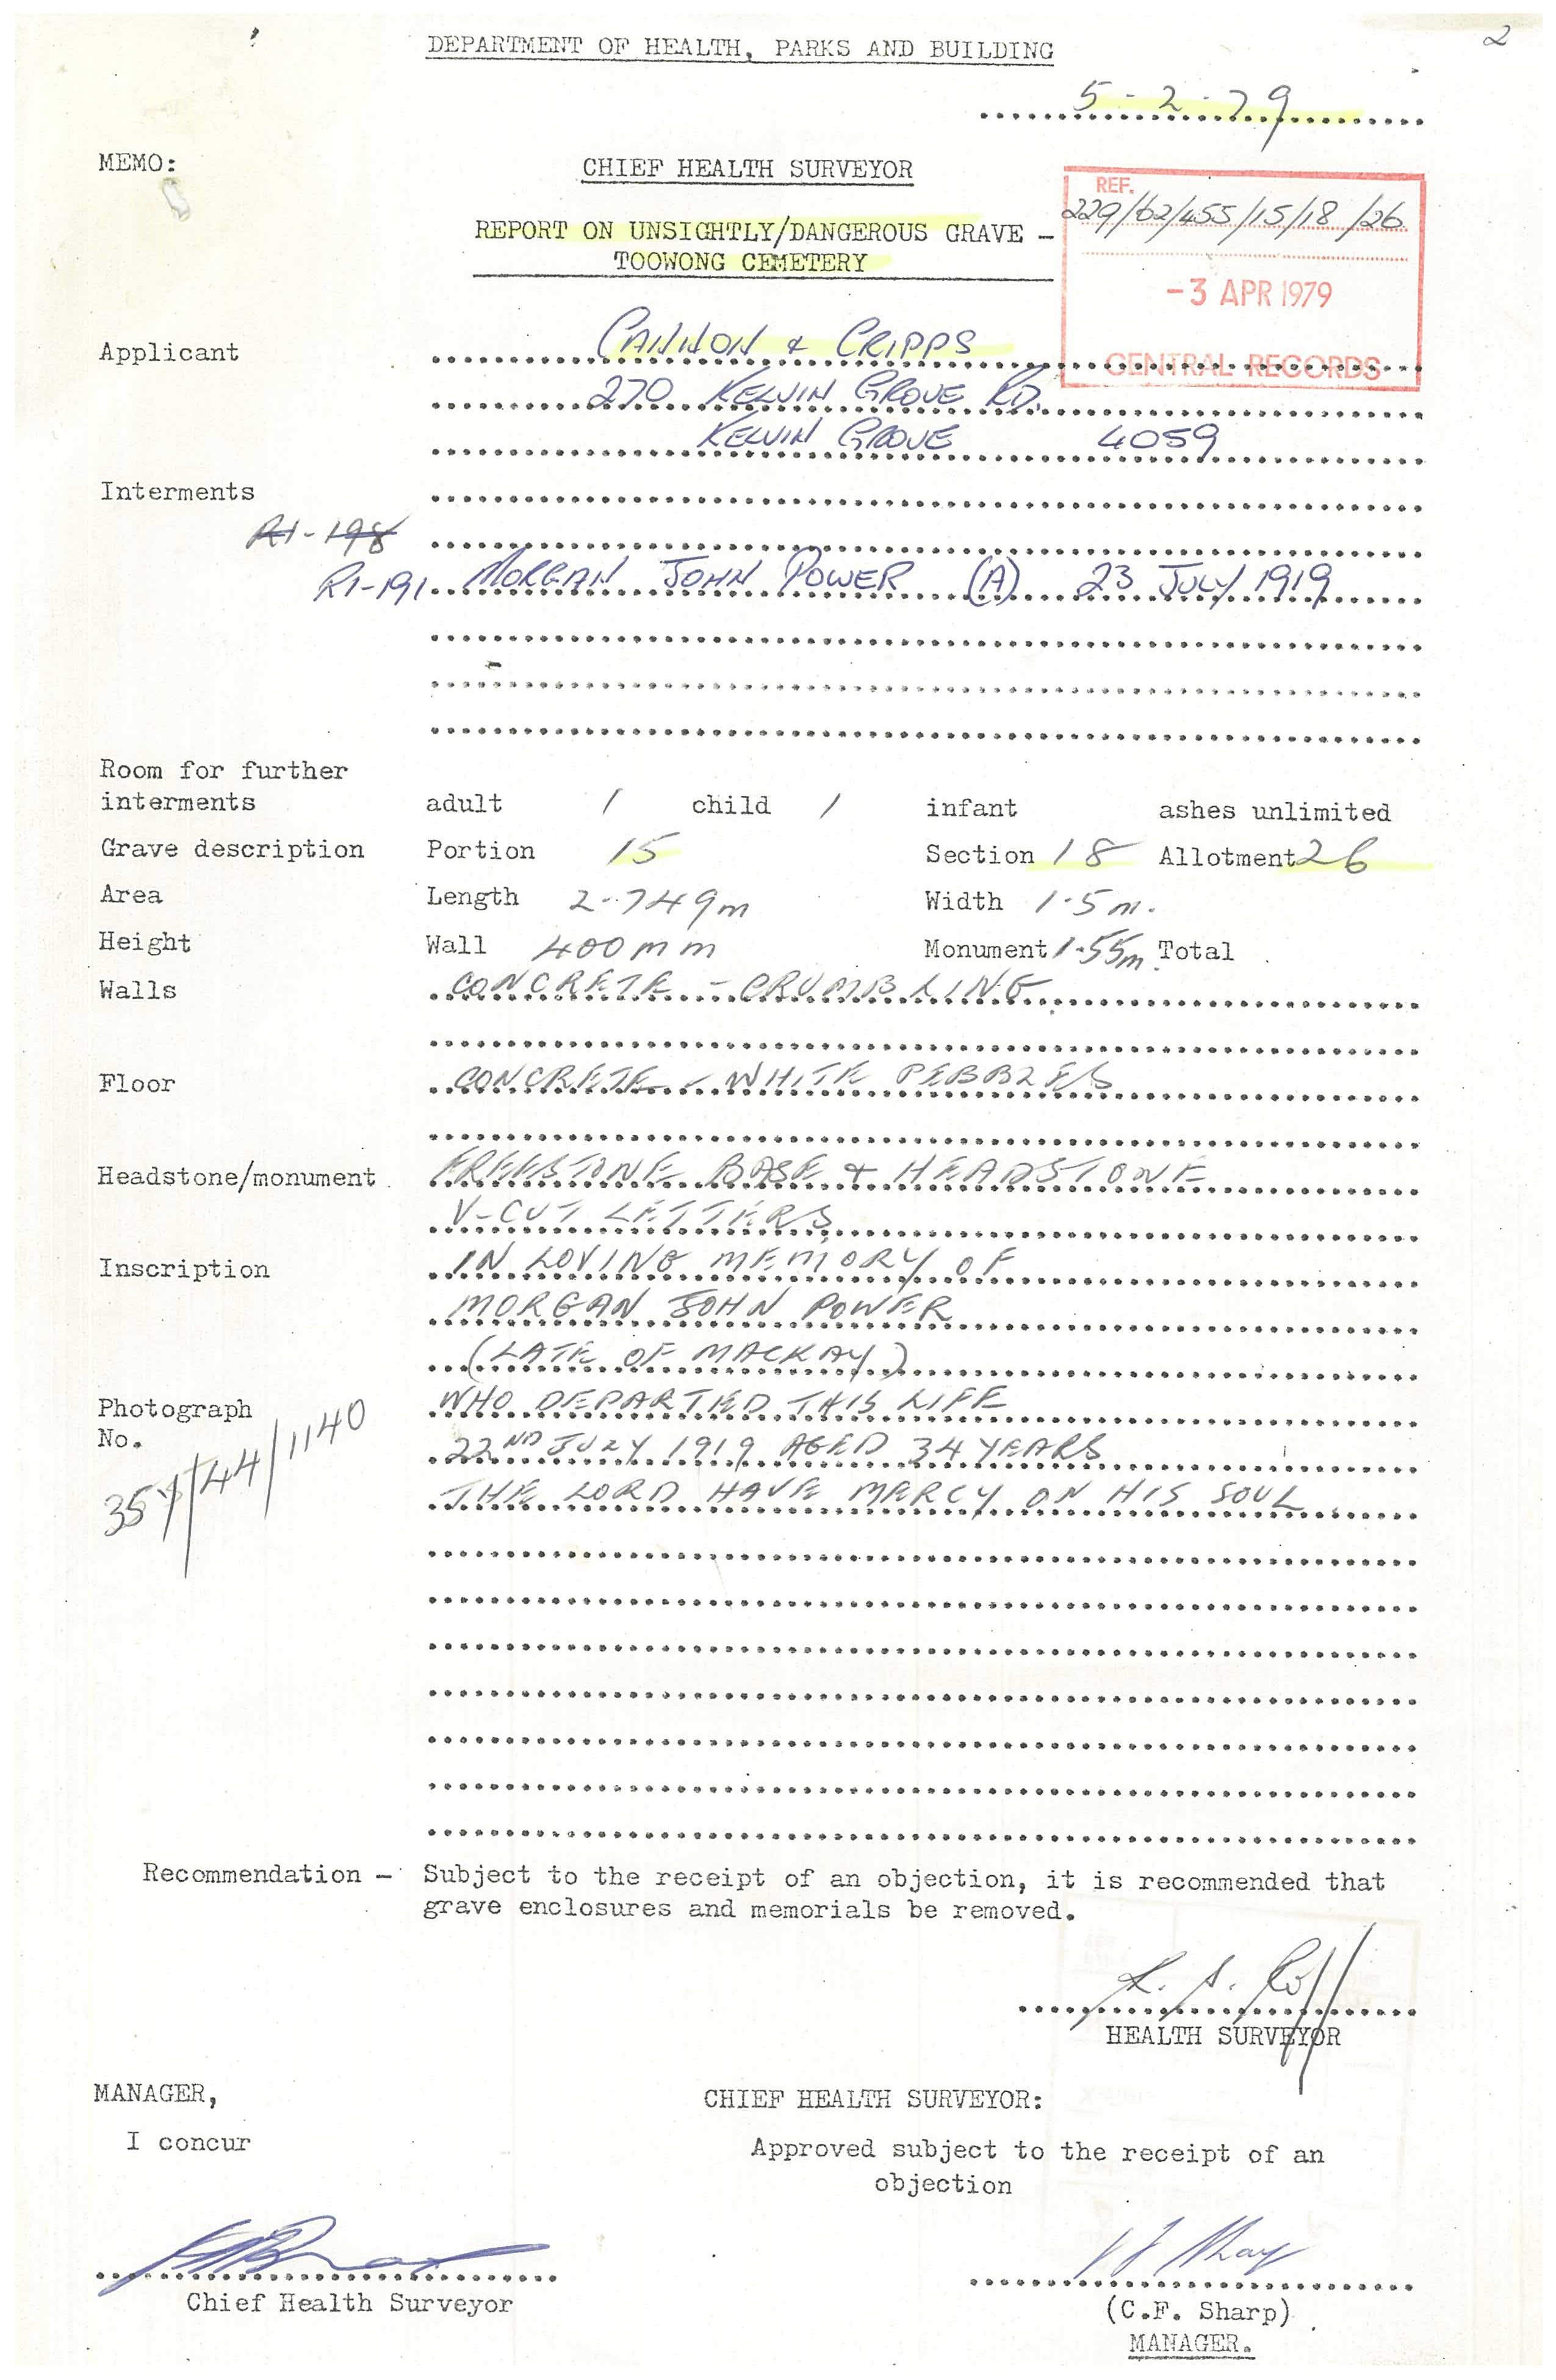 2
DEPARTMENT OF HEALTH, PARKS AND BUILDING
5-2-79
MEMO:
CHIEF HEALTH SURVEYOR
REF.
229/62/455/15/18/26
REPORT ON UNSIGHTLY/DANGEROUS GRAVE -
TOOWONG CEMETERY
-3 APR 1979
CENTRAL RECORDS
Applicant CANNON & CRIPPS
270 KELVIN GROVE RD.
KELVIN GROVE 4059
Interments
R1-198
R1-191 MORGAN JOHN POWER (A) 23 JULY 1919
Room for further
interments adult 1 child 1 infant ashes unlimited
Grave description Portion 15 Section 18 Allotment 26
Area Length 2.749m Width 1.5m.
Height Wall 400mm Monument 1.55m Total
Walls CONCRETE - CRUMBLING
Floor CONCRETE - WHITE PEBBLES
Headstone/monument FREESTONE BASE & HEADSTONE
V-CUT LETTERS
Inscription IN LOVING MEMORY OF
MORGAN JOHN POWER
(LATE OF MACKAY)
Photograph WHO DEPARTED THIS LIFE
No.
22ND JULY 1919 AGED 34 YEARS
THE LORD HAVE MERCY ON HIS SOUL
Recommendation - Subject to the receipt of an objection, it is recommended that
grave enclosures and memorials be removed.
HEALTH SURVEYOR
MANAGER, CHIEF HEALTH SURVEYOR:
I concur Approved subject to the receipt of an
objection
Chief Health Surveyor
(C.F. Sharp)
MANAGER.